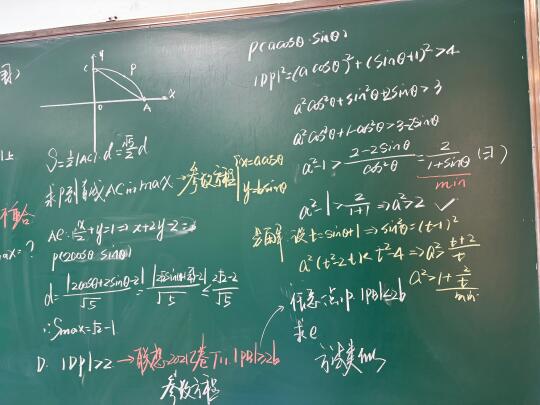 y
C
P
O
A
x
S=½|AC|·d=√5/2 d
求P到直线AC距max→参数方程{x=acosθ
y=bsinθ
AC:x/2+y=1⇒x+2y-2=0
P(2cosθ, sinθ)
d=|2cosθ+2sinθ-2|/√5=|2√2sin(θ+π/4)-2|/√5≤(2√2-2)/√5
∴Smax=√2-1
D. |DP|>2→联想2021乙卷T11. |PB|≤2b
参数方程
P(acosθ, sinθ)
|DP|²=(acosθ)²+(sinθ+1)²>4
a²cos²θ+sin²θ+2sinθ>3
a²cos²θ+1-cos²θ>3-2sinθ
a²-1>(2-2sinθ)/cos²θ=2/(1+sinθ)
min
a²-1>2/(1+1)⇒a²>2 ✓
设t=sinθ+1⇒sin²θ=(t-1)²
a²(t²-2t)<t²-4⇒a²>(t+2)/t
a²>1+2/t
min
任意点P. |PB|≤2b
求e
方法类似